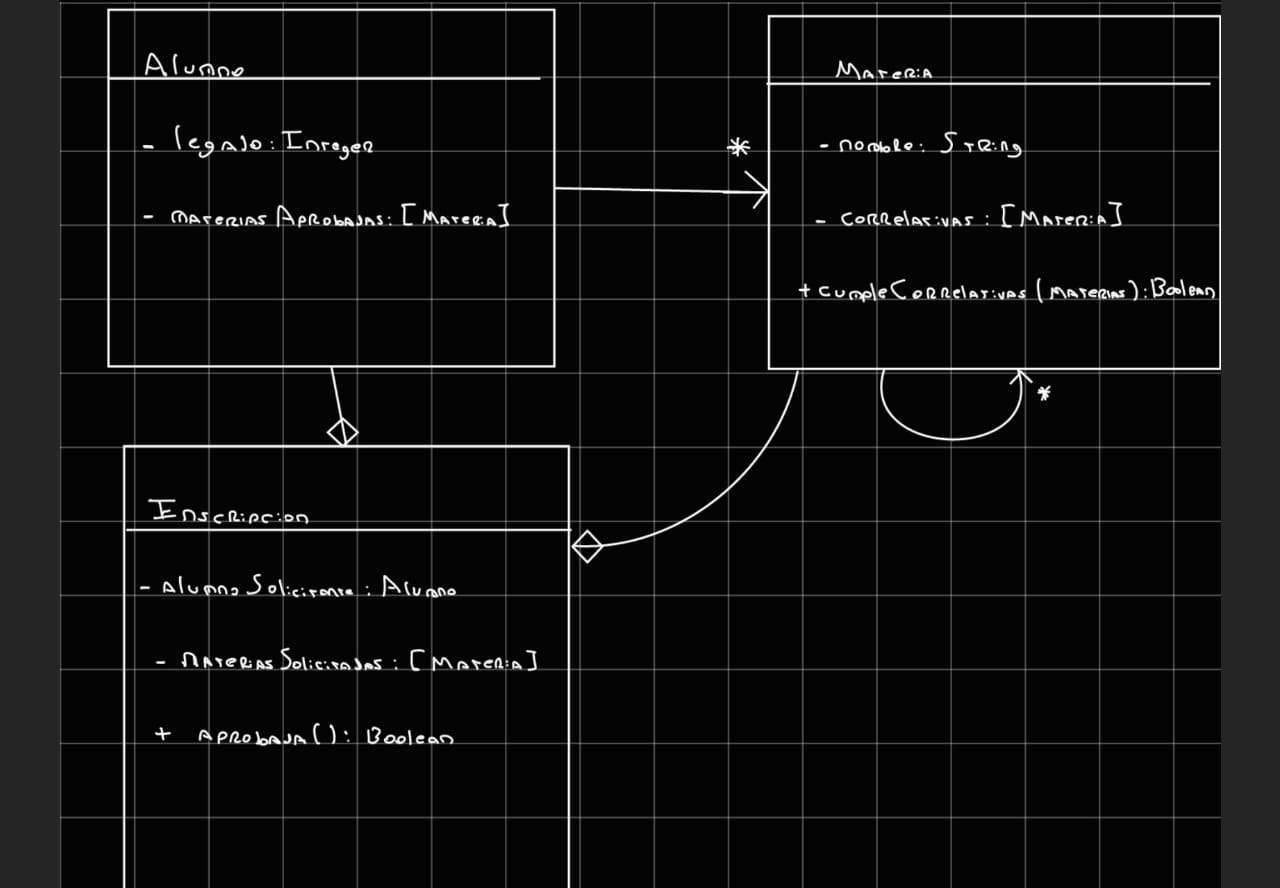 Alumno
- legajo: Integer
- materiasAprobadas: [Materia]
*
Materia
- nombre: String
- correlativas: [Materia]
+ cumpleCorrelativas(materias): Boolean
*
Inscripcion
- alumnoSolicitante: Alumno
- materiasSolicitadas: [Materia]
+ aprobada(): Boolean